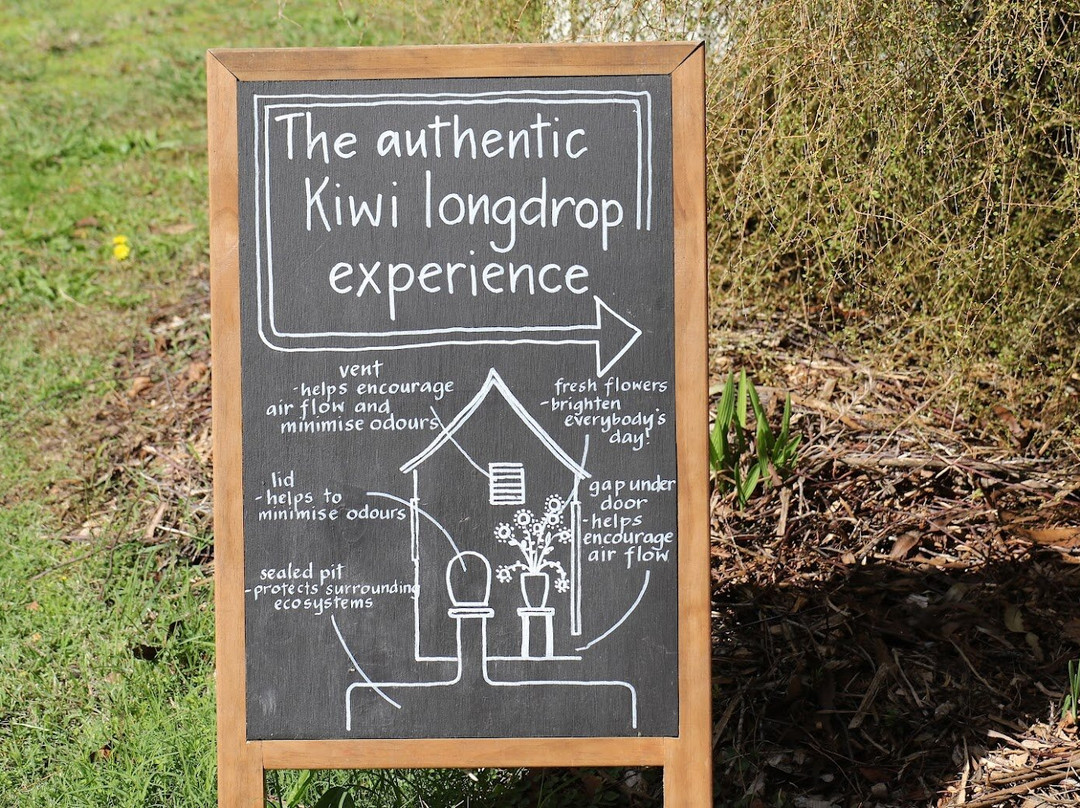 The authentic
Kiwi longdrop
experience
vent
-helps encourage
air flow and
minimise odours
fresh flowers
-brighten
everybody's
day!
lid
-helps to
minimise odours
gap under
door
-helps
encourage
air flow
sealed pit
-protects surrounding
ecosystems